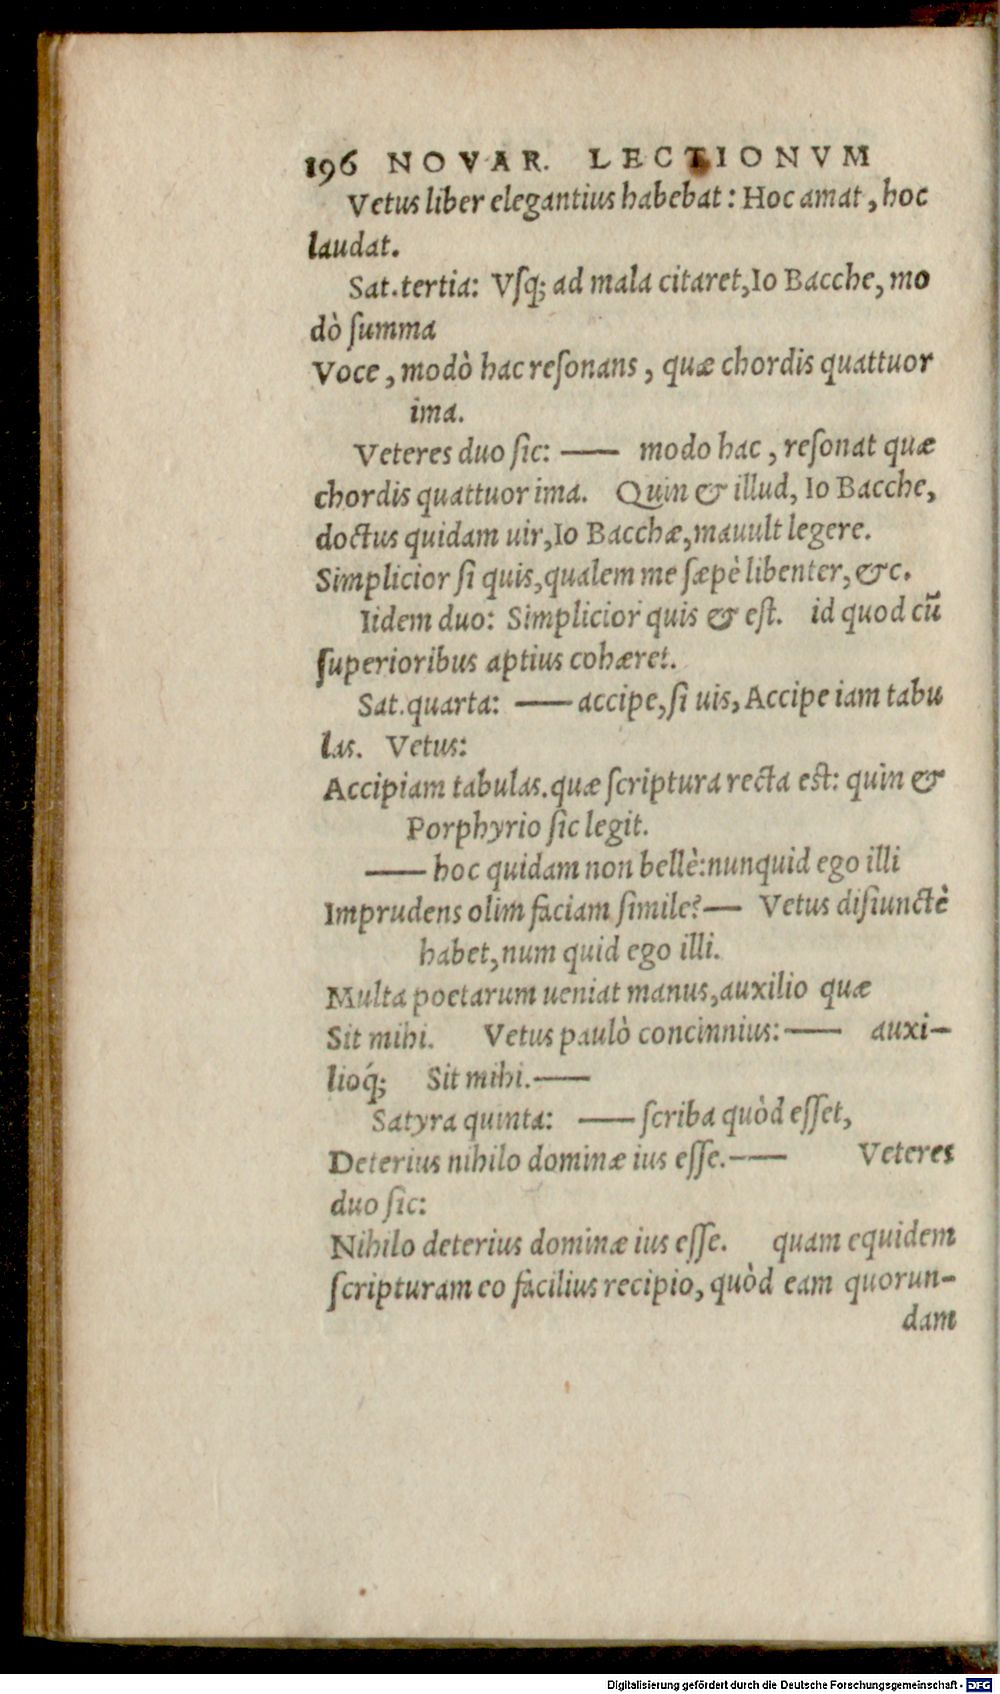 196 NOVAR. LECTIONVM
Vetus liber elegantius habebat: Hoc amat, hoc
laudat.
Sat.tertia: Vſq; ad mala citaret,Io Bacche, mo
dò ſumma
Voce, modò hac reſonans, quæ chordis quattuor
ima.
Veteres duo ſic: —— modo hac, reſonat quæ
chordis quattuor ima. Quin & illud, Io Bacche,
doctus quidam uir,Io Bacchæ,mauult legere.
Simplicior ſi quis,qualem me ſæpè libenter,&c.
Iidem duo: Simplicior quis & est. id quod cū
ſuperioribus aptius cohæret.
Sat.quarta: —— accipe,ſi uis,Accipe iam tabu
las. Vetus:
Accipiam tabulas.quæ ſcriptura recta est: quin &
Porphyrio ſic legit.
—— hoc quidam non bellè:nunquid ego illi
Imprudens olim faciam ſimile?— Vetus diſiunctè
habet,num quid ego illi.
Multa poetarum ueniat manus,auxilio quæ
Sit mihi. Vetus paulò concinnius: —— auxi-
lioq́; Sit mihi.——
Satyra quinta: —— ſcriba quòd eſſet,
Deterius nihilo dominæ ius eſſe.—— Veteres
duo ſic:
Nihilo deterius dominæ ius eſſe. quam equidem
ſcripturam eo facilius recipio, quòd eam quorun-
dam
Digitalisierung gefördert durch die Deutsche Forschungsgemeinschaft - DFG